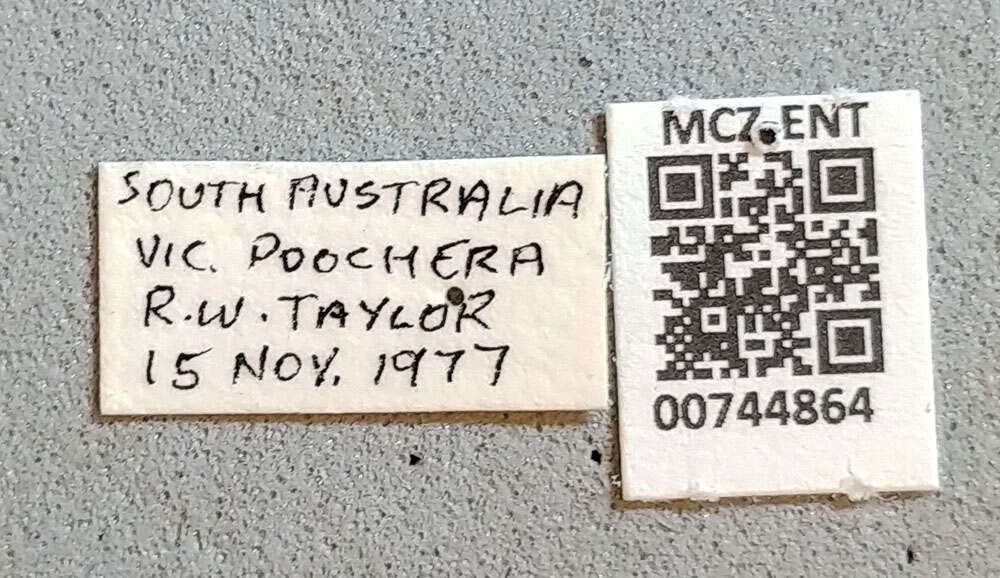 SOUTH AUSTRALIA
VIC. POOCHERA
R.W. TAYLOR
15 NOV. 1977
MCZ-ENT
00744864